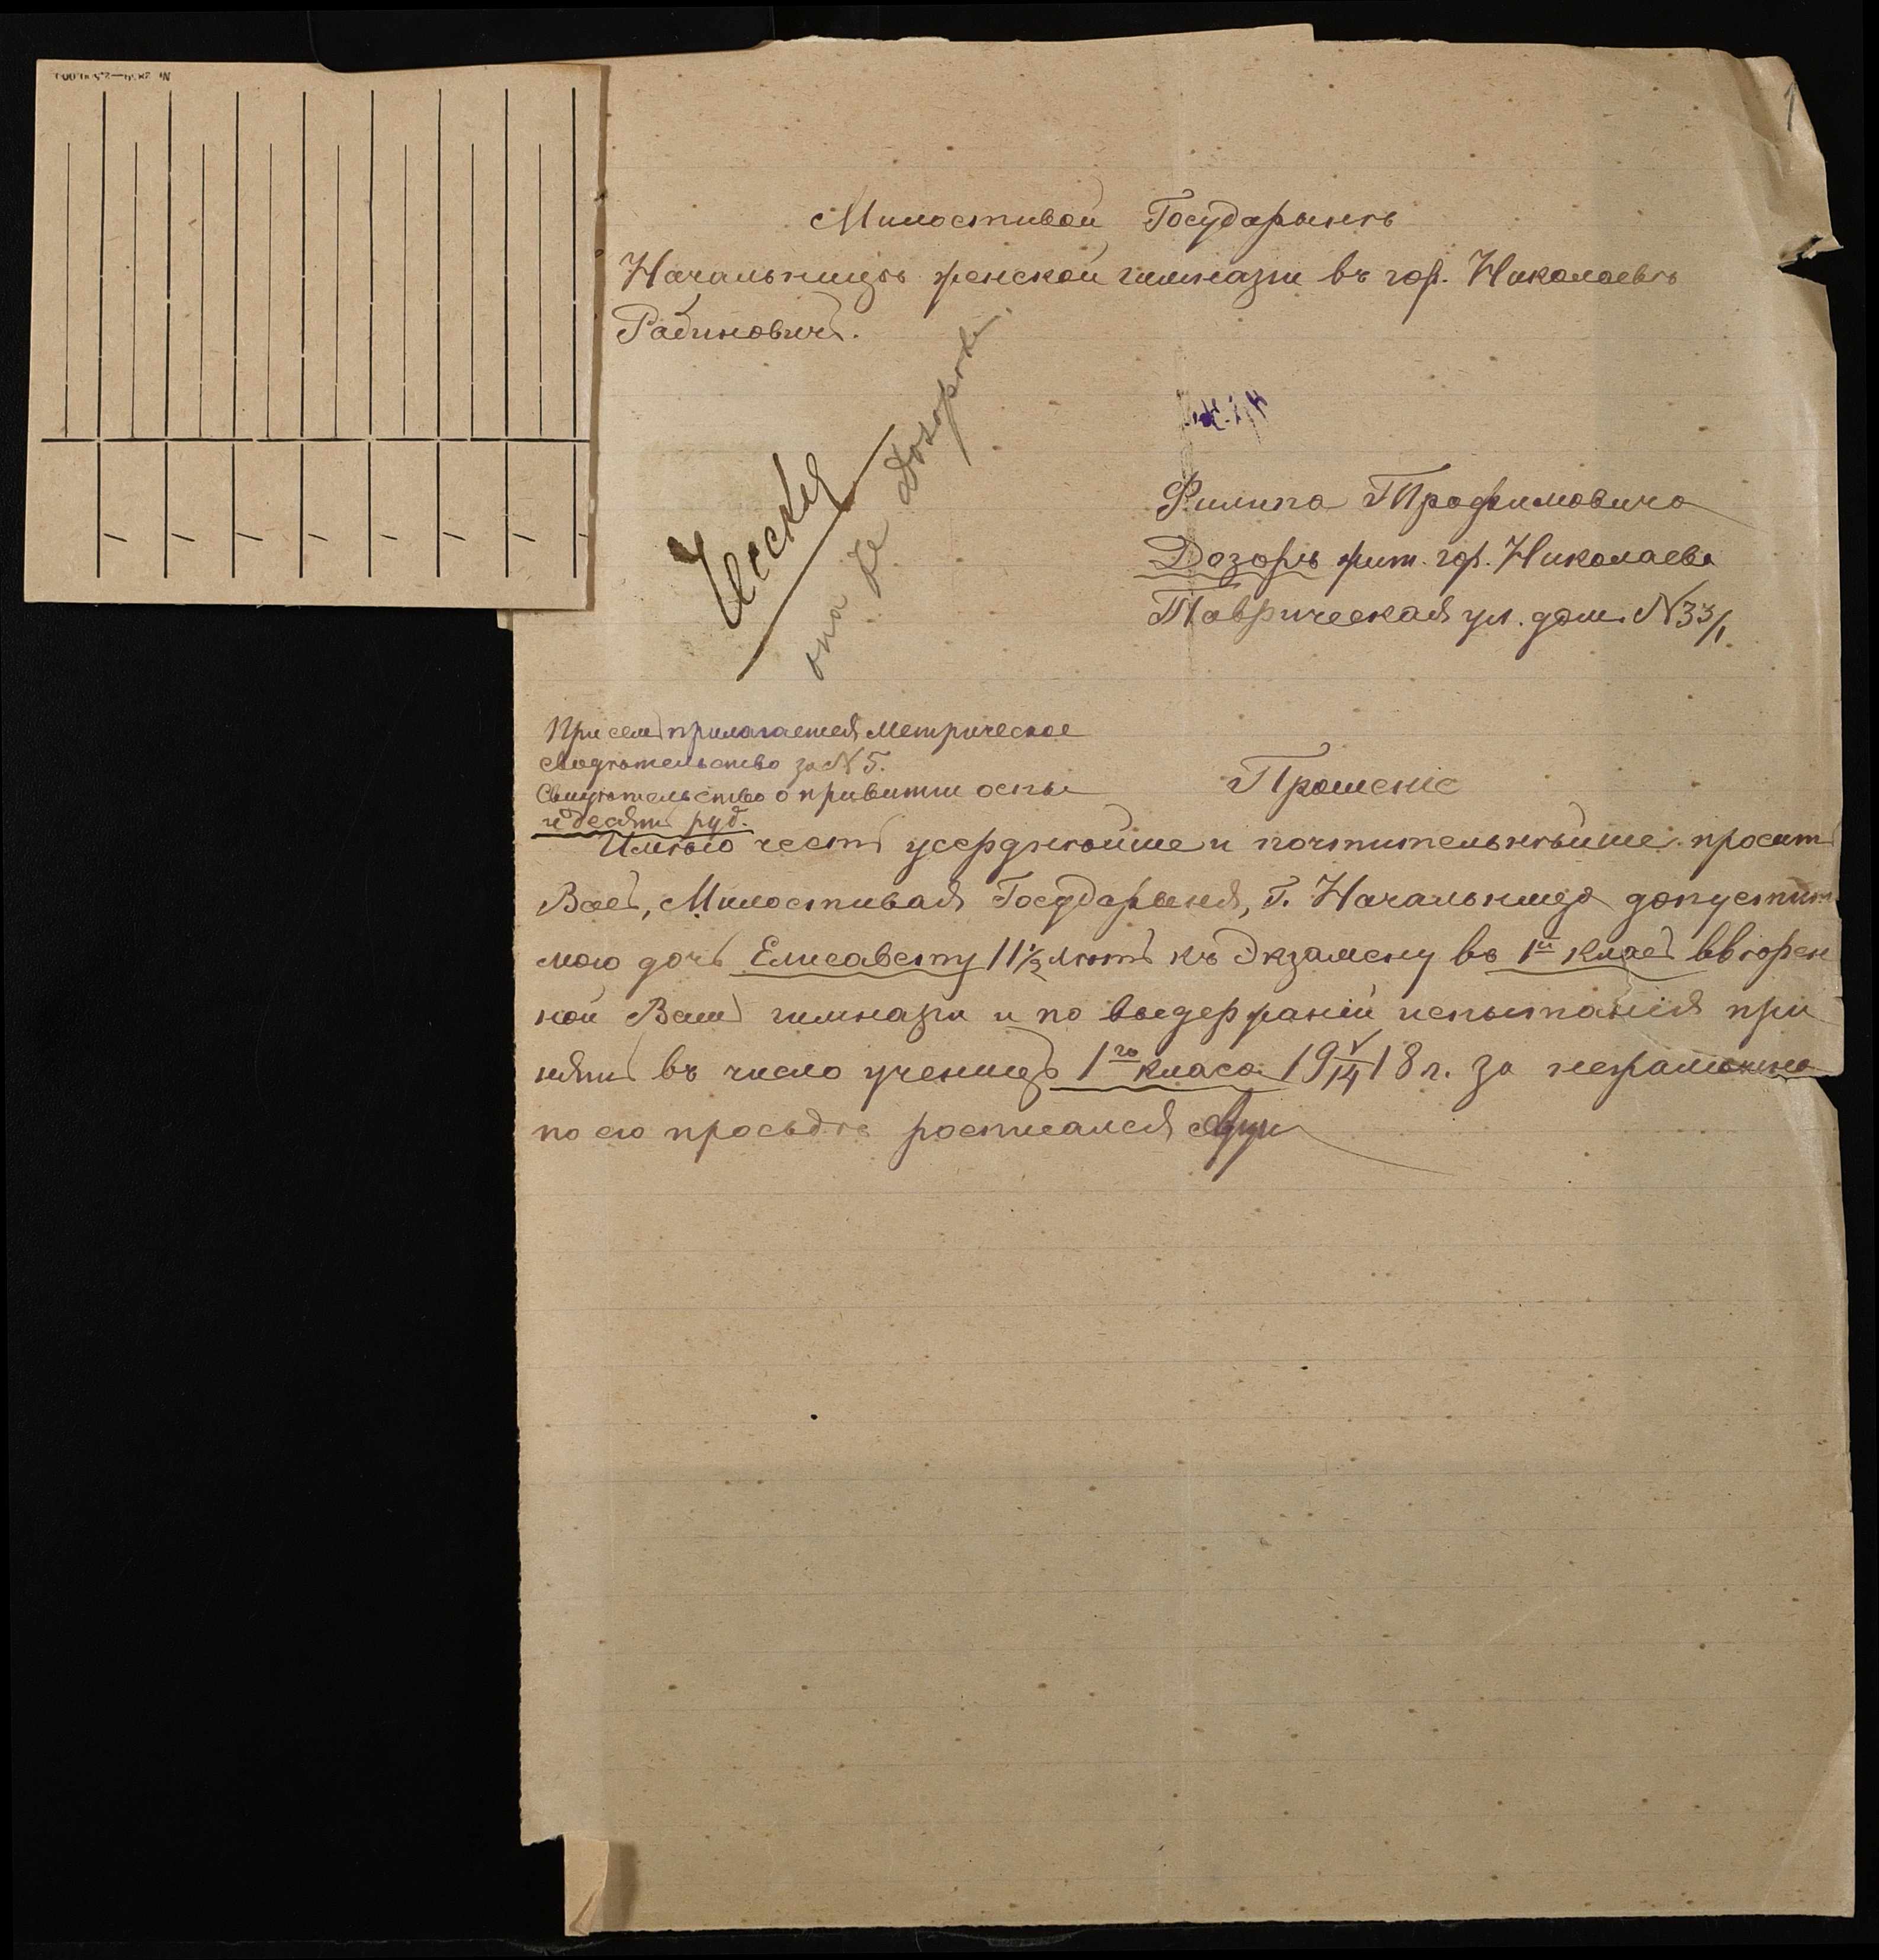 1
Милостивой Государынѣ
Начальницѣ женской гимназіи въ гор. Николаевѣ
Рабиновичъ.
она же Дозоръ
Филипа Трофимовича
Дозоръ жит. гор. Николаева
Таврическая ул. дом. N 33/1
При семъ прилагается Метрическое
свидѣтельство за N 5.
Свидѣтельство о привитіи оспы
и десять руб.
Прошеніе
Имѣю честь усерднѣйше и почтительнѣйше просить
Васъ, Милостивая Государыня, Г. Начальница допустить
мою дочь Елисавету 11½ лѣтъ къ экзамену въ 1й класъ ввѣрен
ной Вамъ гимназіи и по выдержаніи испытанія при
нять въ число ученицъ 1го класа 19 V/14 18 г. за неграмотно
по его просьбѣ росписался